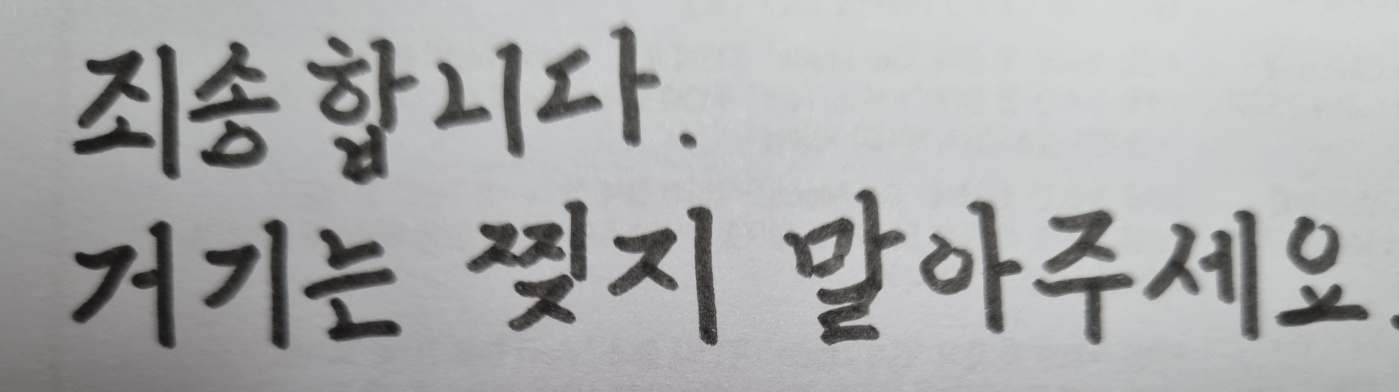 죄송합니다.
거기는 찢지 말아주세요.